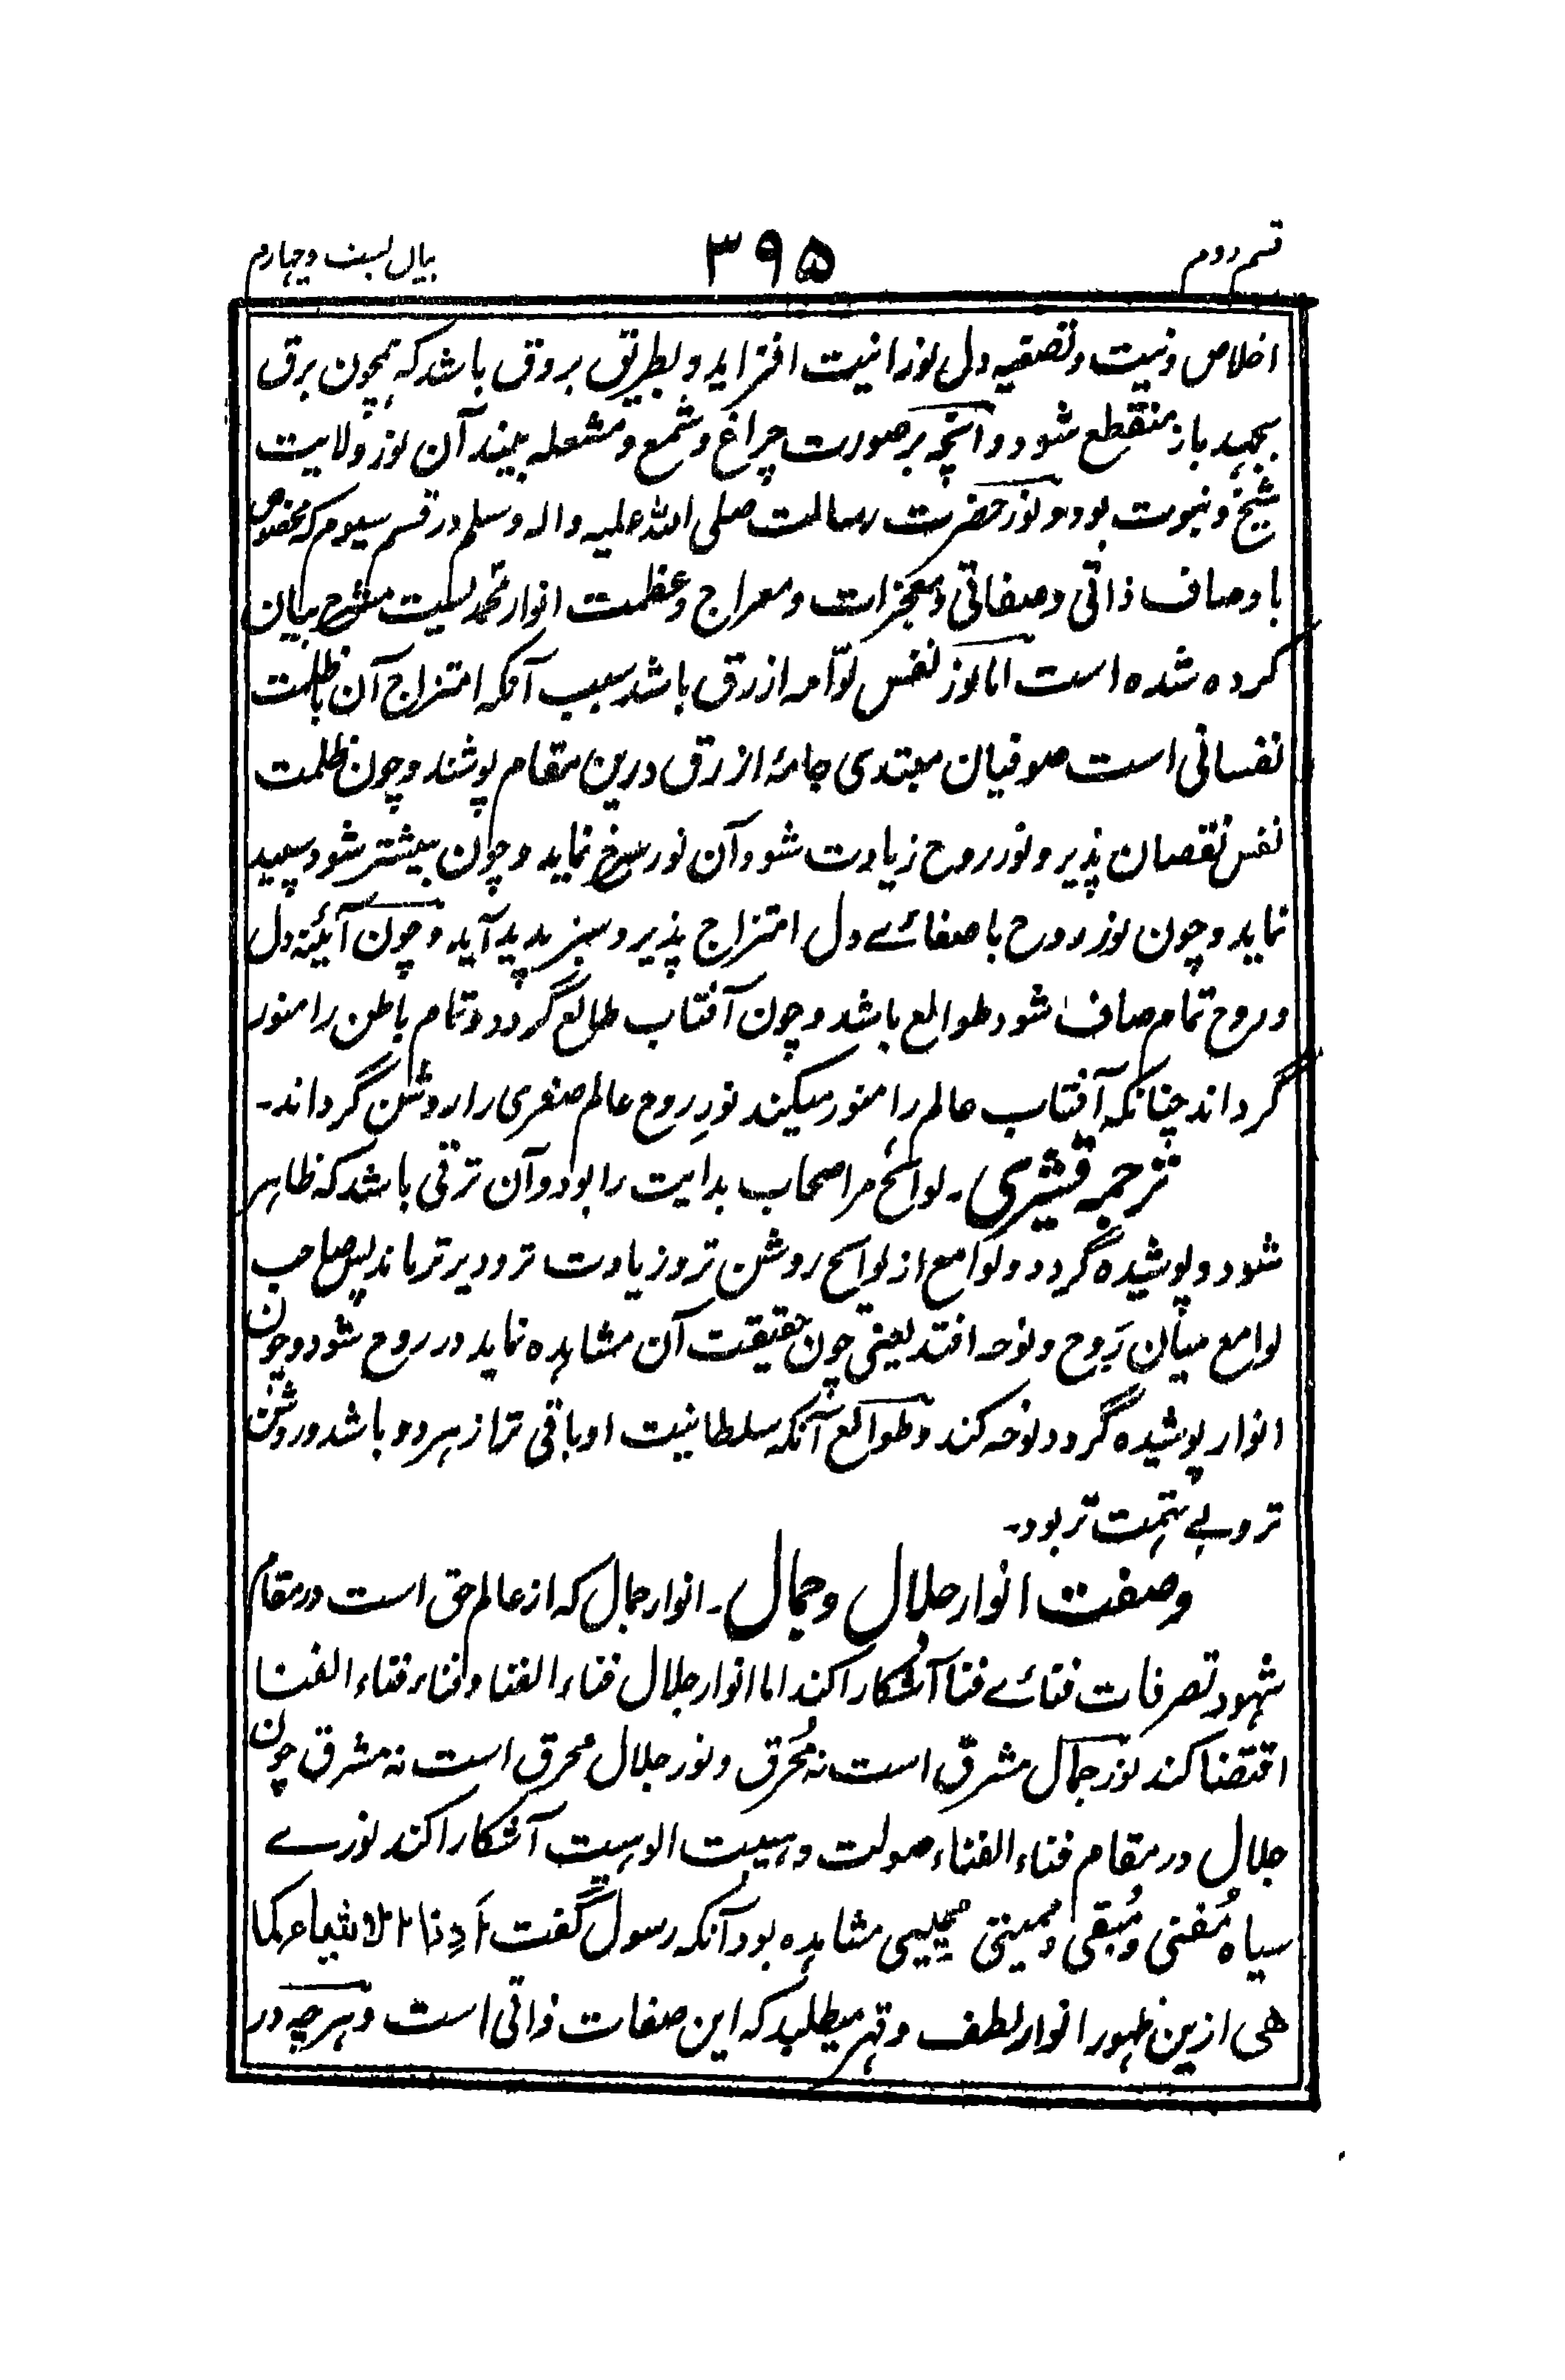 قسم دوم
۳۹۵
بیان بست و چهارم
اخلاص و نیت و تصفیه دل نورانیت افزاید و بطریق بروق باشد که همچون برق
بجهد باز منقطع شود و آنچه بر صورت چراغ و شمع و مشعله بیند آن نور ولایت
شیخ و نبوت بود و نور حضرت رسالت صلی الله علیه و اله وسلم در قسم سیوم که مخصوص
با وصاف ذاتی و صفاتی و معجزات و معراج و عظمت انوار محمدیست مشرح بیان
کرده شده است اما نور نفس لوّامه ازرق باشد سبب آنکه امتزاج آن با ظلمت
نفسانی است صوفیان مبتدی جامۀ ازرق درین مقام پوشند و چون ظلمت
نفس نقصان پذیر و نور روح زیادت شود آن نور سرخ نماید و چون بیشتر شود سپید
نماید و چون نور روح با صفائے دل امتزاج پذیرد سبز پدید آید و چون آئینه دل
و روح تمام صاف شود طوالع باشد و چون آفتاب طالع گردد و تمام باطن را منور
گرداند چنانکه آفتاب عالم را منور میکند نورِ روح عالم صغری را روشن گرداند۔
ترجمه قشیری۔ لوائح مر اصحاب بدایت را بود و آن ترقی باشد که ظاهر
شود و پوشیده گردد و لوامع از لوایح روشن تر و زیادت تر و دیر تر ماند پس صاحب
لوامع میان رَوح و نوحه افتد یعنی چون حقیقت آن مشاهده نماید در روح شود و چون
انوار پوشیده گردد نوحه کند و طوالع آنکه سلطانیت او باقی تر از هر دو باشد و روشن
تر و بے تهمت تر بود۔
وصفت انوار جلال و جمال۔ انوار جمال که از عالم حق است در مقام
شهود تصرفات فنائے فنا آشکارا کند اما انوار جلال فناء الفنا و فناء فناء الفنا
اقتضا کند نور جمال مشرق است نه مُحرق و نور جلال محرق است نه مشرق چون
جلال در مقام فناء الفناء صولت و هیبت الوهیت آشکارا کند نورے
سیاه مُفنی و مُبقی و ممیتی محییی مشاهده بود آنکه رسول گفت اَرِنَا الاشیاء کما
هی ازین ظهور انوار لطف و قهر میطلبد که این صفات ذاتی است و هرچه در